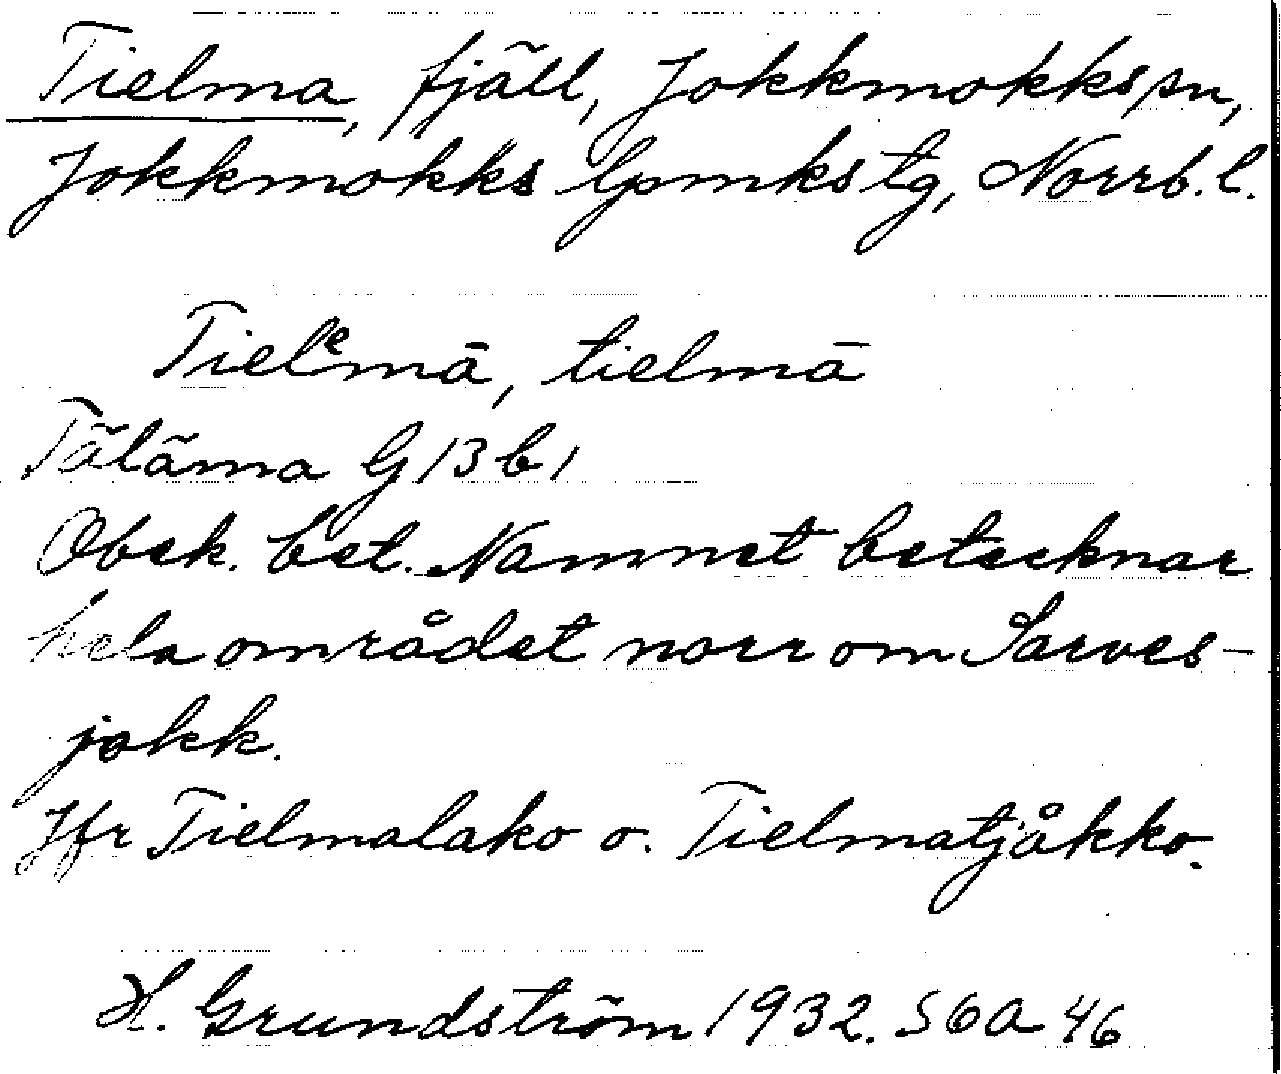 Tielma, fjäll, Jokkmokks sn,
Jokkmokks lpmks tg, Norrb. l.
Tielᵉmā, tielmā
Täläma G 13 b 1
Obek. bet. Namnet betecknar
hela området norr om Sarves-
jokk.
Jfr Tielmalako o. Tielmatjåkko.
H. Grundström 1932. S6a 46